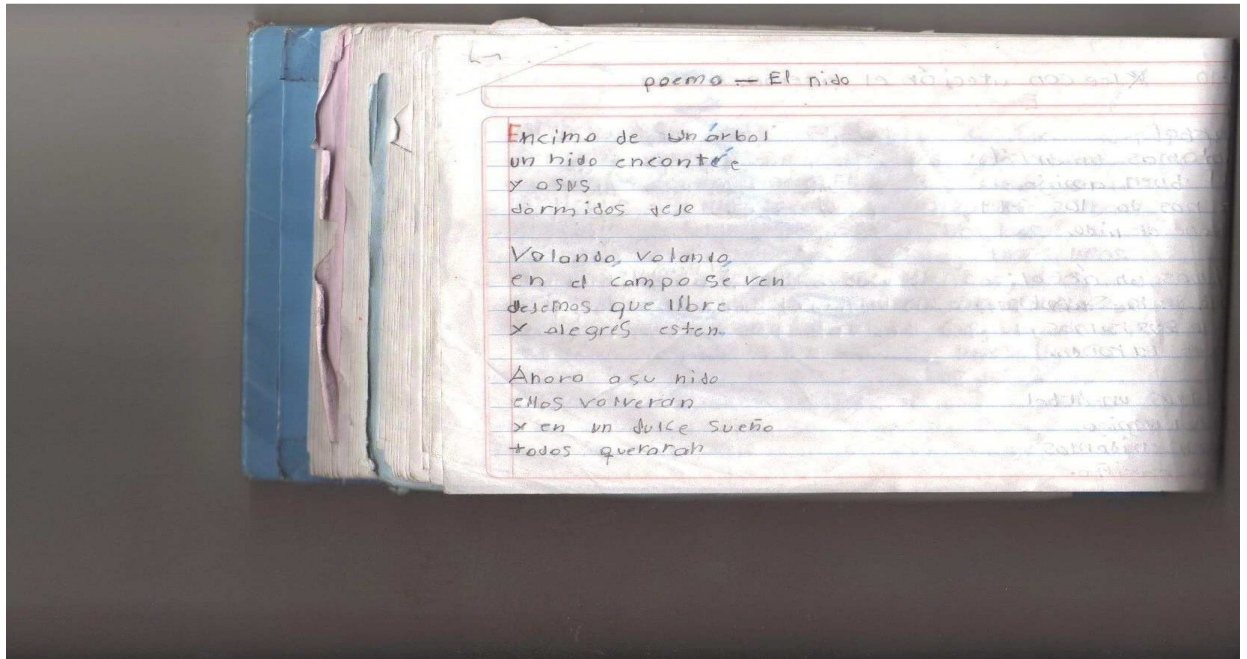 poema — El nido
Encima de un árbol
un nido encontré
y a sus
dormidos deje
Volando, volando,
en el campo se ven
dejemos que libre
y alegres esten.
Ahora a su nido
ellos volveran
y en un dulce sueño
todos quedarah